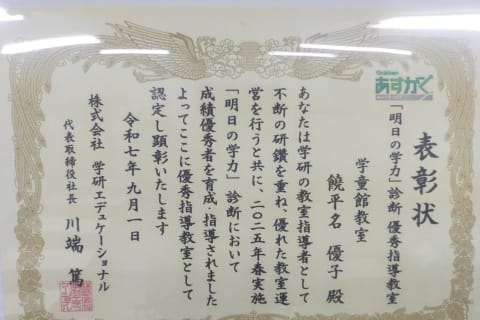 表彰状
Gakken
あすがく
「明日の学力」診断 優秀指導教室
学童館教室
饒平名 優子 殿
あなたは学研の教室指導者として
不断の研鑽を重ね、優れた教室運
営を行うと共に、二〇二五年春実施
「明日の学力」診断において
成績優秀者を育成、指導されました
よってここに優秀指導教室として
認定し顕彰いたします
令和七年九月一日
株式会社 学研エデュケーショナル
代表取締役社長 川端 篤